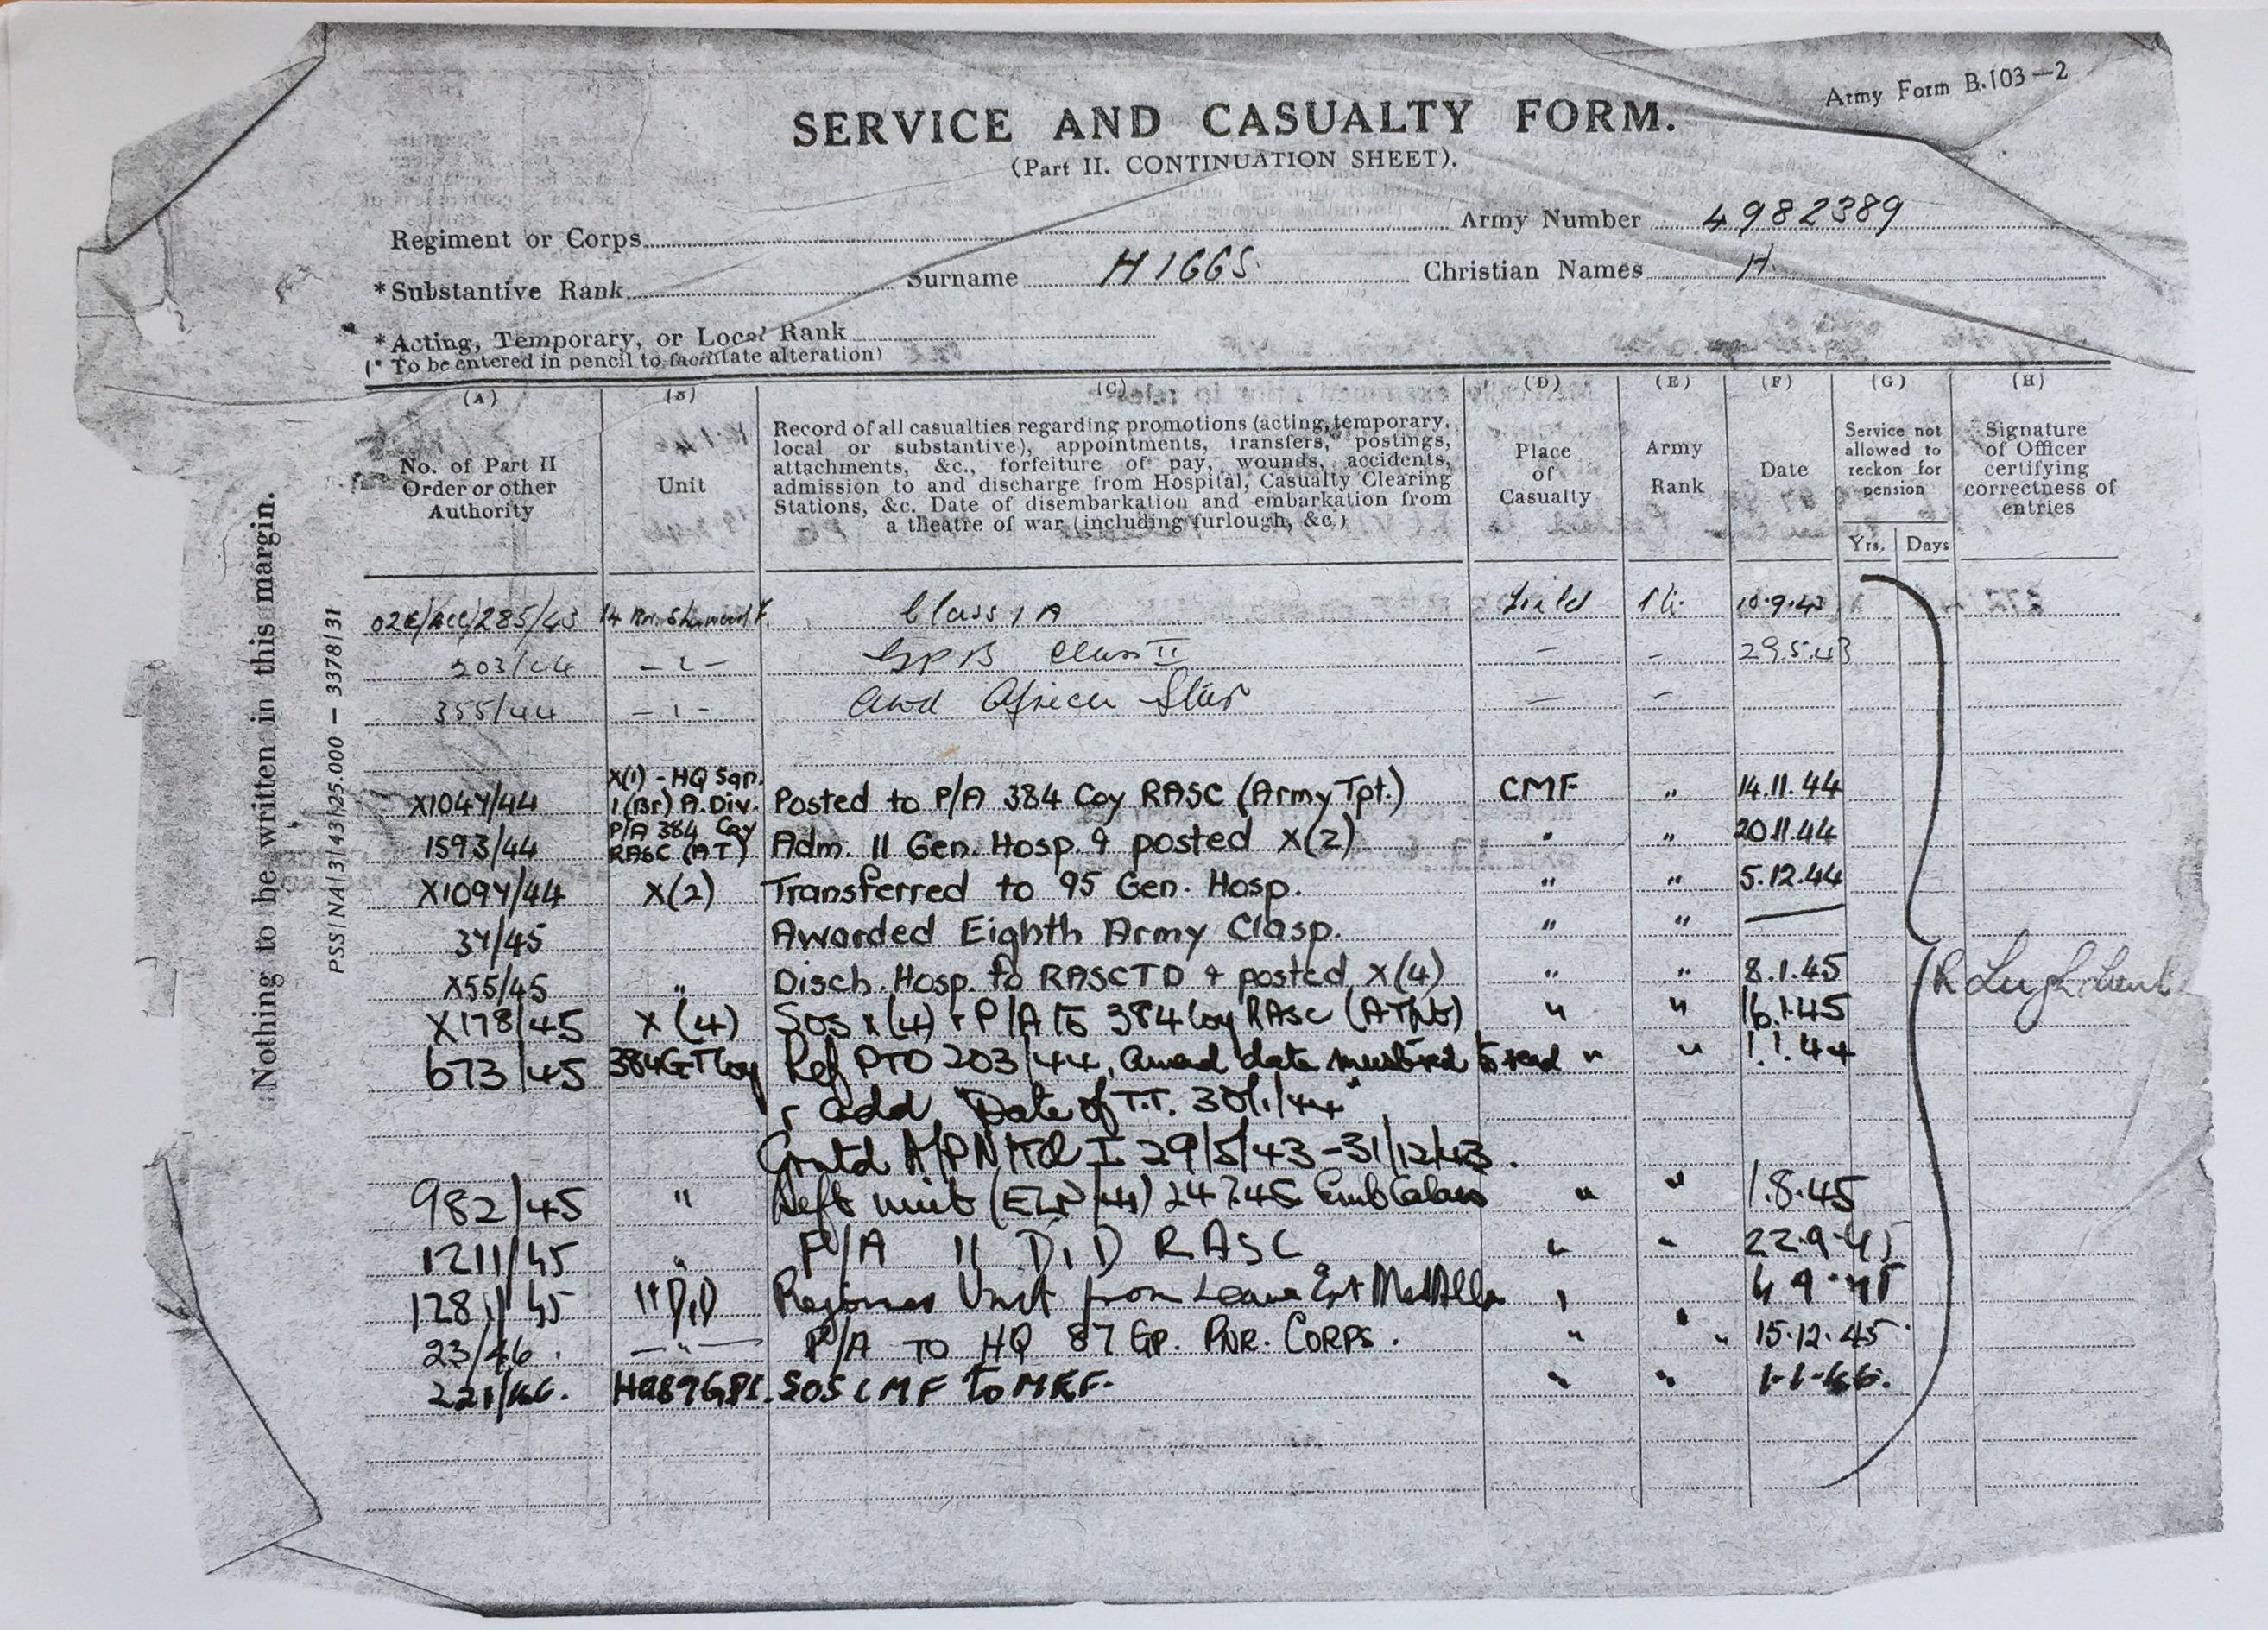 Army Form B.103—2
SERVICE AND CASUALTY FORM.
(Part II. CONTINUATION SHEET).
Regiment or Corps Army Number 4982389
*Substantive Rank Surname HIGGS. Christian Names H
*Acting, Temporary, or Local Rank
(* To be entered in pencil to facilitate alteration)
Nothing to be written in this margin.
PSS/NA/3/43/25.000 — 3378/31
(A) (B) (C) (D) (E) (F) (G) (H)
No. of Part II Order or other Authority
Unit
Record of all casualties regarding promotions (acting, temporary,
local or substantive), appointments, transfers, postings,
attachments, &c., forfeiture of pay, wounds, accidents,
admission to and discharge from Hospital, Casualty Clearing
Stations, &c. Date of disembarkation and embarkation from
a theatre of war (including furlough, &c.)
Place of Casualty
Army Rank
Date
Service not allowed to reckon for pension
Yrs. Days
Signature of Officer certifying correctness of entries
/285/43 14 Bn. Class 1 A Field 10.9.43
203/44 — " — Gp B Class II — — 29.5.43
355/44 — " — Awd Africa Star — —
X1047/44 X(1) - HQ Sqn. 1 (Br) A. Div. Posted to P/A 384 Coy RASC (Army Tpt.) CMF " 14.11.44
1593/44 P/A 384 Coy RASC (AT) Adm. 11 Gen. Hosp. & posted X(2) " " 20.11.44
X1097/44 X(2) Transferred to 95 Gen. Hosp. " " 5.12.44
37/45 Awarded Eighth Army Clasp. " " —
X55/45 " Disch. Hosp. to RASCTD & posted X(4) " " 8.1.45
X178/45 X(4) SOS X(4) & P/A to 384 Coy RASC (ATpt) " " 16.1.45
673/45 384 GT Coy Ref PTO 203/44, award date to read " " 1.1.44
& add "Date of T.T. 30/1/44"
Grntd I 29/5/43 - 31/12/43.
982/45 " Left unit 24.7.45 " " 1.8.45
1211/45 " P/A 11 D.I.D RASC " " 22.9.45
128 /45 11 DID Rejoined Unit from Leave " " 9.45
23/46. — " — P/A TO HQ 87 GP. PNR. CORPS. " " 15.12.45
221/46. SOS CMF to MEF. " " 1-1-46.